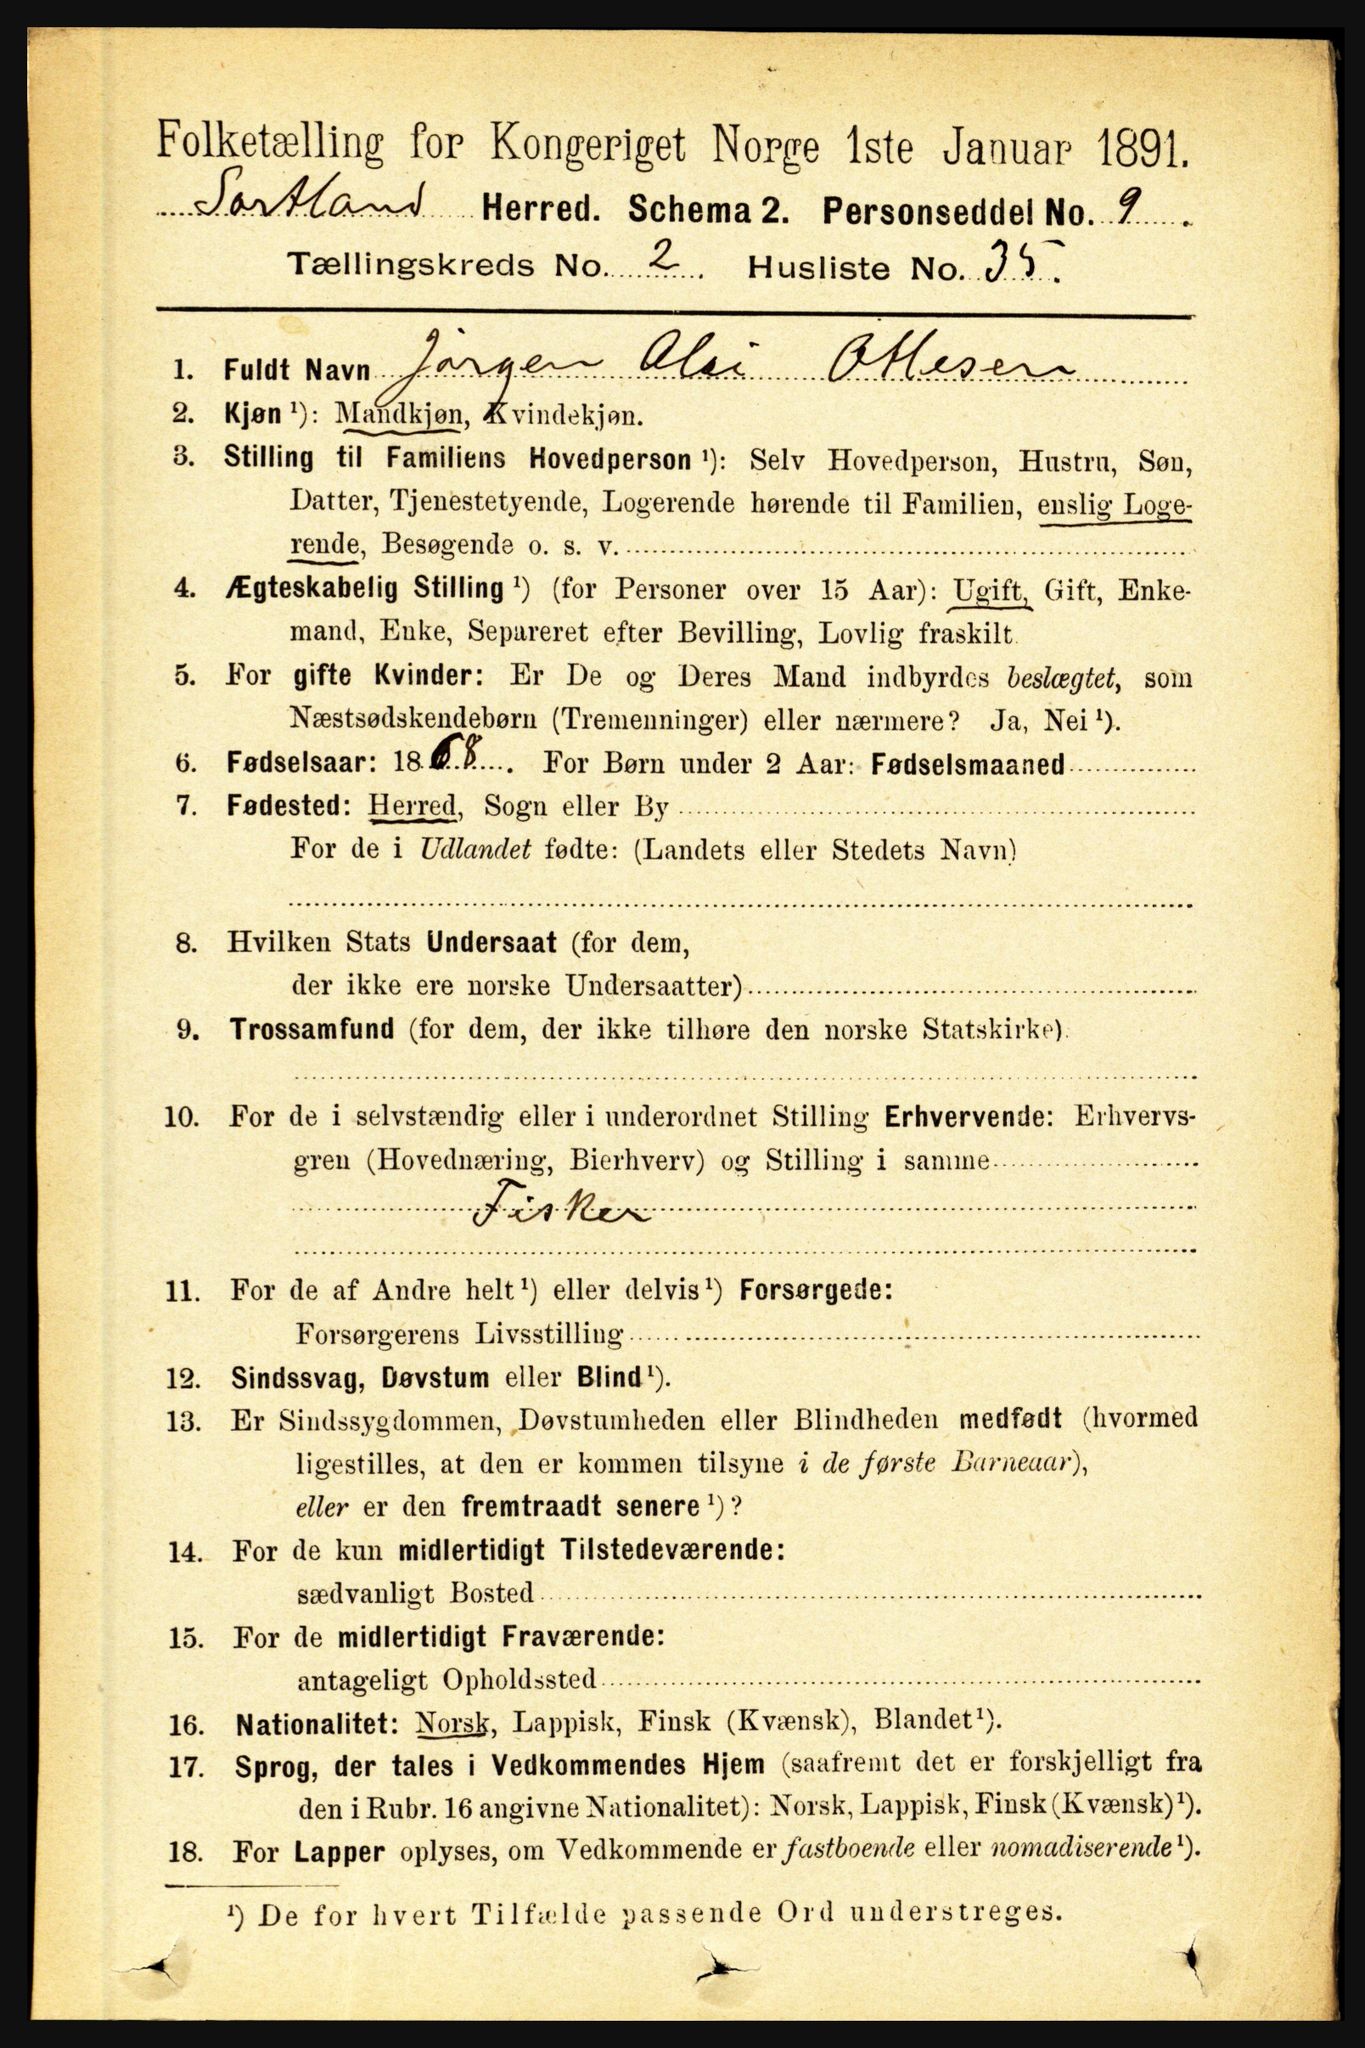 Folketælling for Kongeriget Norge 1ste Januar 1891.
Sortland Herred. Schema 2. Personseddel No. 9.
Tællingskreds No. 2. Husliste No. 35.
1. Fuldt Navn Jørgen Olai Ottesen
2. Kjøn ¹): Mandkjøn, Kvindekjøn.
3. Stilling til Familiens Hovedperson ¹): Selv Hovedperson, Hustru, Søn,
Datter, Tjenestetyende, Logerende hørende til Familien, enslig Loge-
rende, Besøgende o. s. v.
4. Ægteskabelig Stilling ¹) (for Personer over 15 Aar): Ugift, Gift, Enke-
mand, Enke, Separeret efter Bevilling, Lovlig fraskilt.
5. For gifte Kvinder: Er De og Deres Mand indbyrdes beslægtet, som
Næstsødskendebørn (Tremenninger) eller nærmere? Ja, Nei ¹).
6. Fødselsaar: 1868. For Børn under 2 Aar: Fødselsmaaned
7. Fødested: Herred, Sogn eller By
For de i Udlandet fødte: (Landets eller Stedets Navn)
8. Hvilken Stats Undersaat (for dem,
der ikke ere norske Undersaatter)
9. Trossamfund (for dem, der ikke tilhøre den norske Statskirke).
10. For de i selvstændig eller i underordnet Stilling Erhvervende: Erhvervs-
gren (Hovednæring, Bierhverv) og Stilling i samme
Fisker
11. For de af Andre helt ¹) eller delvis ¹) Forsørgede:
Forsørgerens Livsstilling
12. Sindssvag, Døvstum eller Blind ¹).
13. Er Sindssygdommen, Døvstumheden eller Blindheden medfødt (hvormed
ligestilles, at den er kommen tilsyne i de første Barneaar),
eller er den fremtraadt senere ¹)?
14. For de kun midlertidigt Tilstedeværende:
sædvanligt Bosted
15. For de midlertidigt Fraværende:
antageligt Opholdssted
16. Nationalitet: Norsk, Lappisk, Finsk (Kvænsk), Blandet ¹).
17. Sprog, der tales i Vedkommendes Hjem (saafremt det er forskjelligt fra
den i Rubr. 16 angivne Nationalitet): Norsk, Lappisk, Finsk (Kvænsk) ¹).
18. For Lapper oplyses, om Vedkommende er fastboende eller nomadiserende ¹).
¹) De for hvert Tilfælde passende Ord understreges.